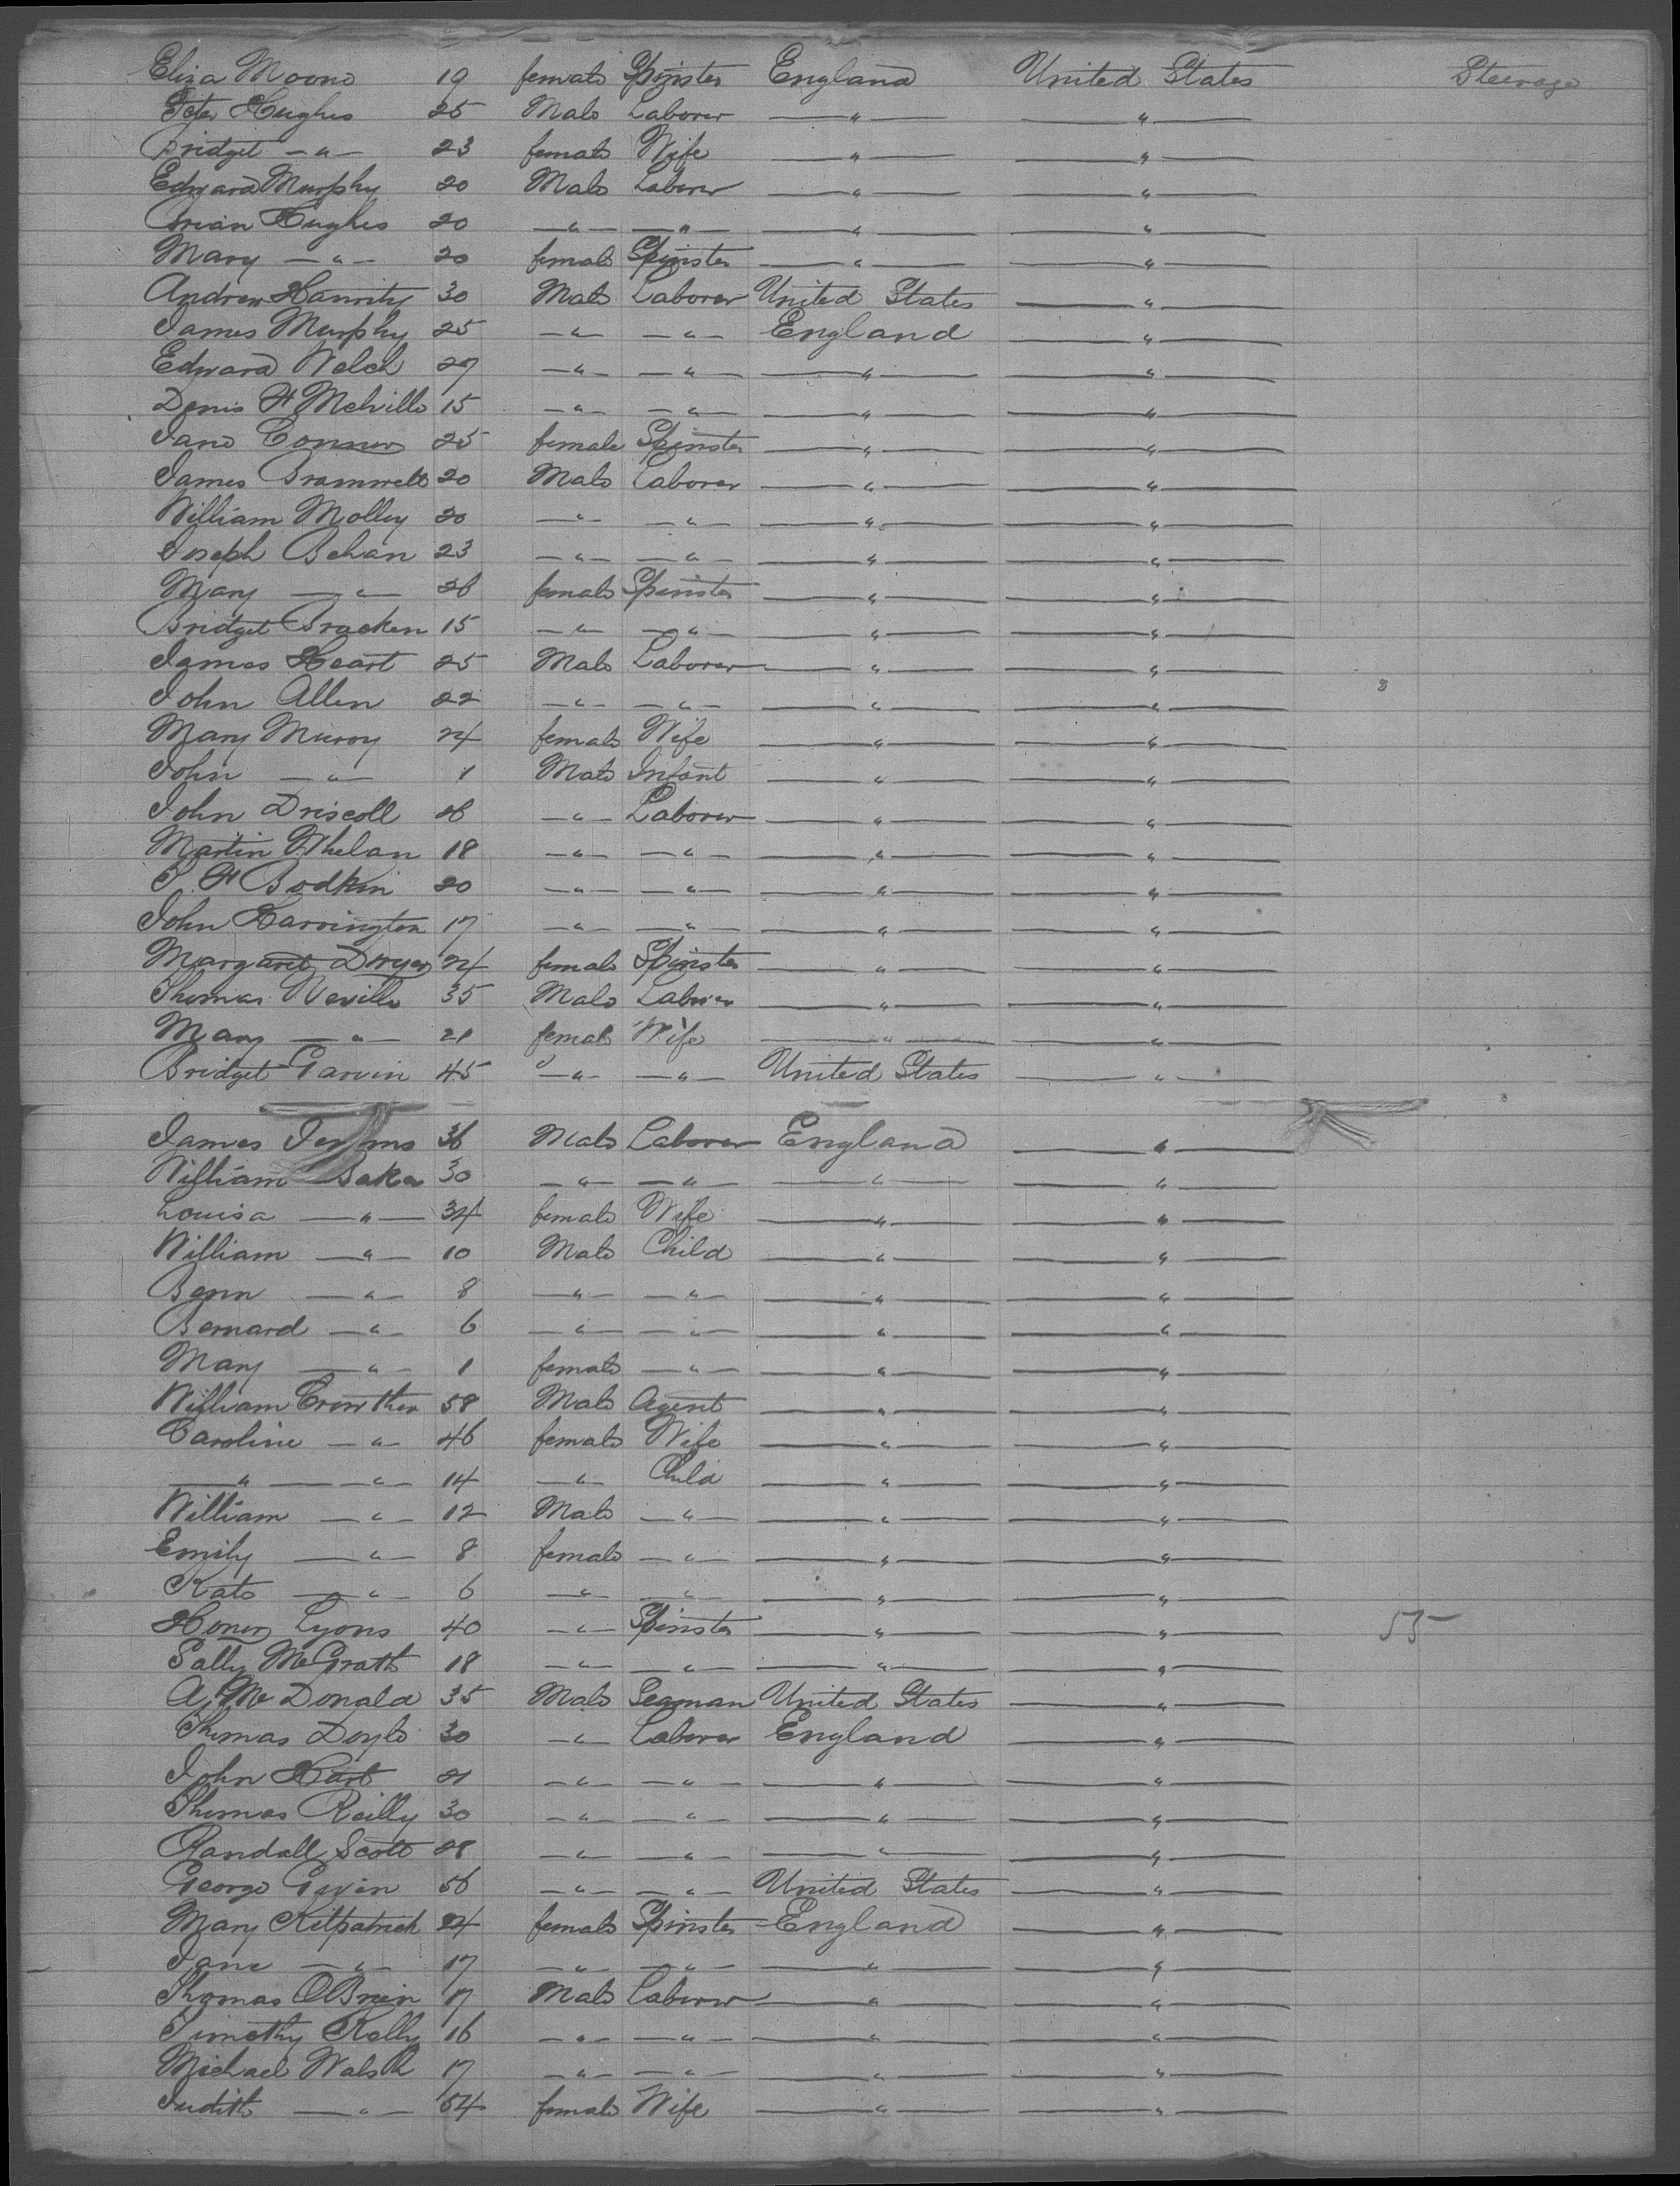 Eliza Moore 19 female Spinster England United States Steerage
Peter Hughes 25 Male Laborer " "
Bridget " 23 female Wife " "
Edward Murphy 20 Male Laborer " "
Brian Hughes 20 " " " "
Mary " 20 female Spinster " "
Andrew Hanrity 30 Male Laborer United States "
James Murphy 25 " " England "
Edward Welch 27 " " " "
Denis H Melville 15 " " " "
Jane Connor 25 female Spinster " "
James Bramwell 20 Male Laborer " "
William Molley 20 " " " "
Joseph Behan 23 " " " "
Mary " 26 female Spinster " "
Bridget Bracken 15 " " " "
James Heart 25 Male Laborer " "
John Allen 22 " " " "
Mary Muroy 24 female Wife " "
John " 1 Male Infant " "
John Driscoll 26 " Laborer " "
Martin Whelan 18 " " " "
P. H Bodkin 20 " " " "
John Harrington 17 " " " "
Margaret Dwyer 24 female Spinster " "
Thomas Neville 35 Male Laborer " "
Mary " 21 female Wife " "
Bridget Garvin 45 " " United States "
James 36 Male Laborer England "
William Baker 30 " " " "
Louisa " 34 female Wife " "
William " 10 Male Child " "
Benn " 8 " " " "
Bernard " 6 " " " "
Mary " 1 female " " "
William Crowther 58 Male Agent " "
Caroline " 46 female Wife " "
" " 14 " Child " "
William " 12 Male " " "
Emily " 8 female " " "
Kate " 6 " " " "
Honor Lyons 40 " Spinster " " 55
Sally McGrath 18 " " " "
A. McDonald 35 Male Seaman United States "
Thomas Doyle 30 " Laborer England "
John Hart 21 " " " "
Thomas Reilly 30 " " " "
Randall Scott 28 " " " "
George Gevin 56 " " United States "
Mary Kilpatrick 24 female Spinster England "
Jane " 17 " " " "
Thomas OBrien 17 Male Laborer " "
Timothy Kelly 16 " " " "
Michael Walsh 17 " " " "
Judith " 54 female Wife " "